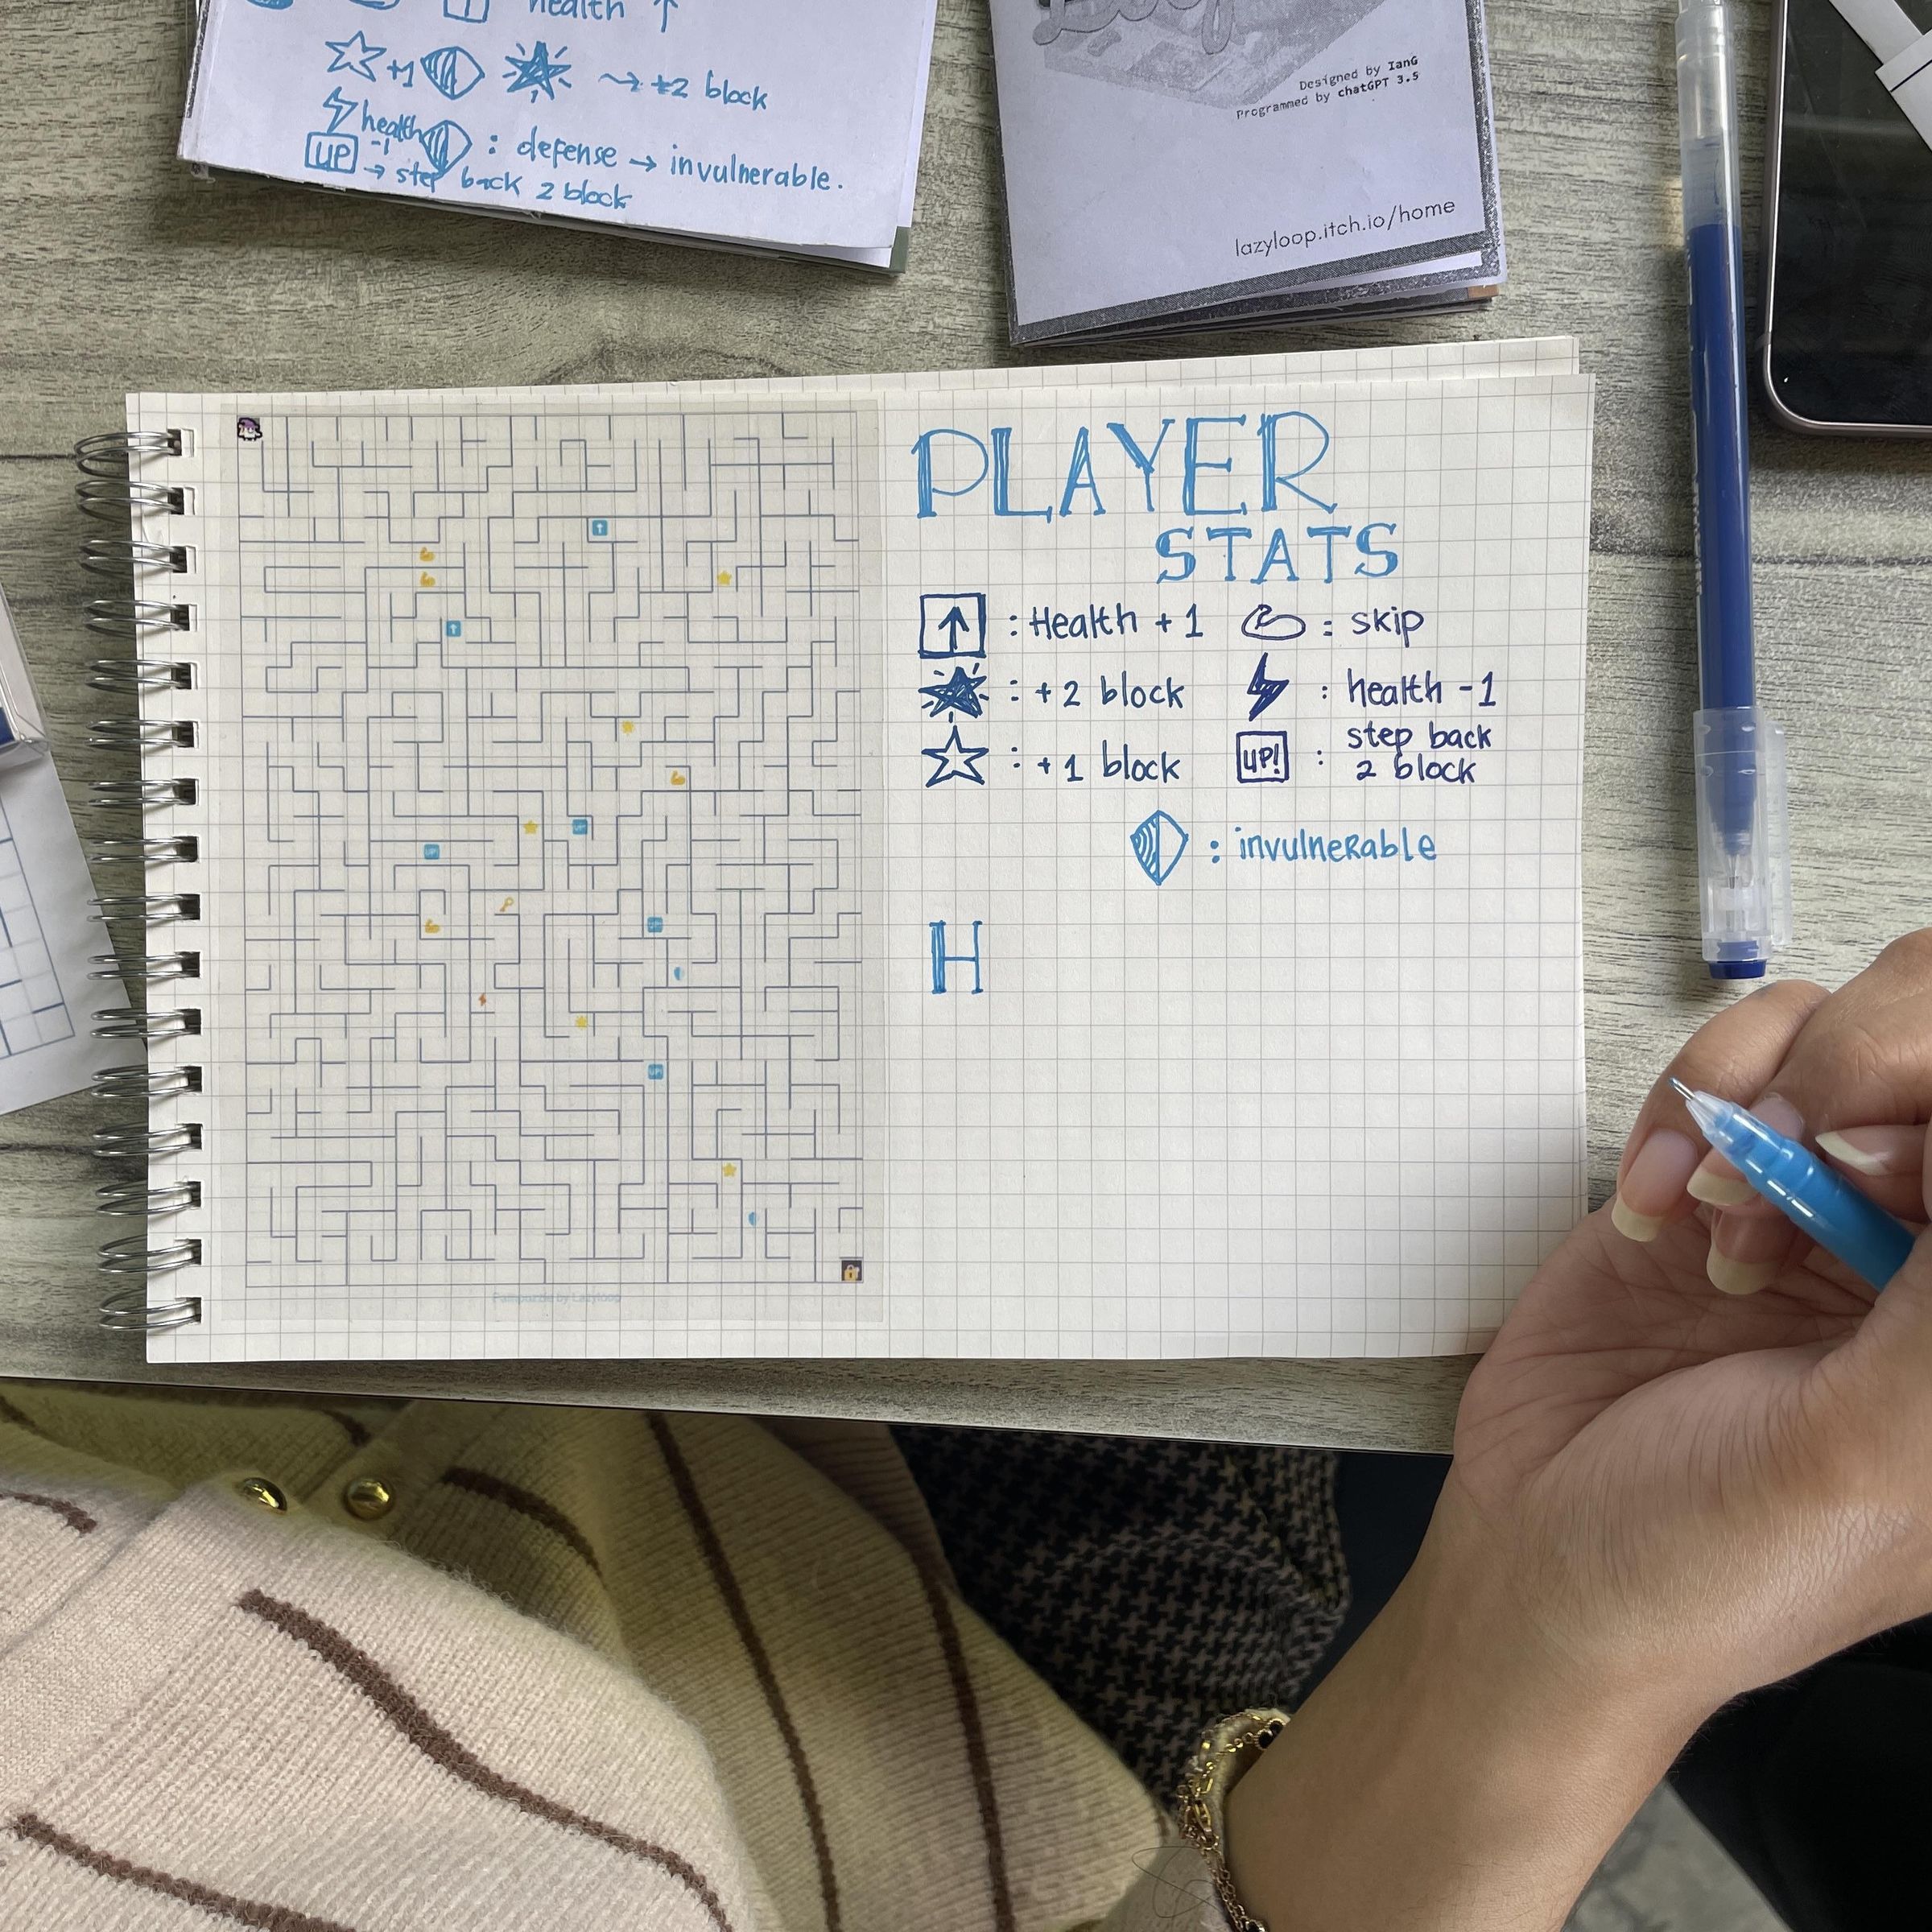 health ↑
+1 ~> +2 block
health -1 : defense → invulnerable.
UP → step back 2 block
Designed by IanG
Programmed by chatGPT 3.5
lazyloop.itch.io/home
PLAYER
STATS
↑ : Health + 1
: skip
: + 2 block
: health -1
: + 1 block
UP! : step back
2 block
: invulneRable
H
UP!
UP!
UP!
UP!
by Lazyloop